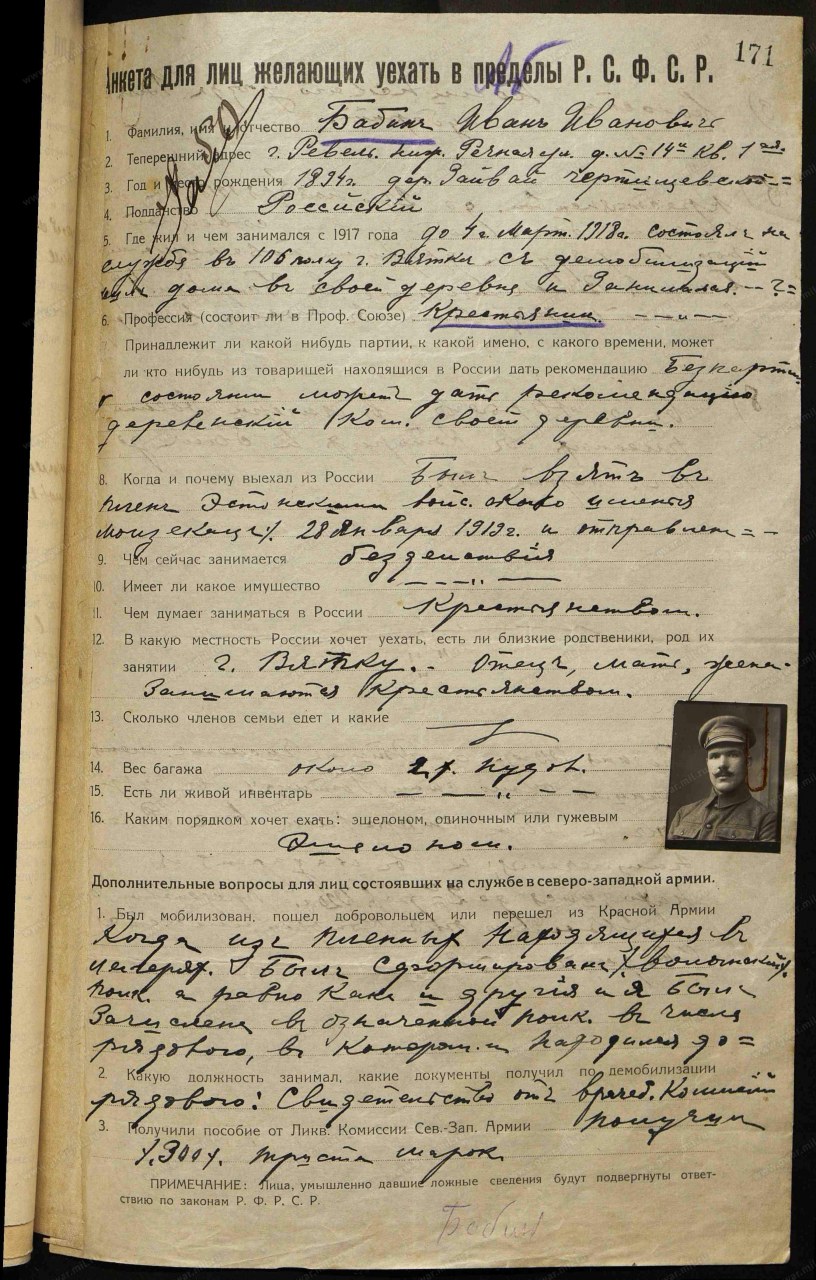 171
Анкета для лиц желающих уехать в пределы Р. С. Ф. С. Р.
1. Фамилия, имя и отчество Бабинъ Иванъ Ивановичъ
2. Теперешний адрес г. Ревель. Речная ул. д. № 14 кв. 1ая.
3. Год и место рождения 1894г. дер. Зайвай
4. Подданство Россiйскiй
5. Где жил и чем занимался с 1917 года до 4г. Март. 1918г. состоялъ на
службѣ въ 106 полку г. Вятка съ демобилизацiи
дома въ своей деревнѣ и Занимался.
6. Профессия (состоит ли в Проф. Союзе) Крестьянин.
7. Принадлежит ли какой нибудь партии, к какой имено, с какого времени, может
ли кто нибудь из товарищей находящися в России дать рекомендацию
состоянии можетъ дать рекомендацiю
деревенскiй Ком. своей деревни.
8. Когда и почему выехал из России Былъ взятъ въ
пленъ Эстонскими войс. около имѣнья
28 Января 1919г. и отправлен =
9. Чем сейчас занимается бездействiя
10. Имеет ли какое имущество — — — „ —
11. Чем думает заниматься в России Крестьянством.
12. В какую местность России хочет уехать, есть ли близкие родственики, род их
занятии г. Вятку. Отецъ, мать, жена.
Занимаются Крестьянством.
13. Сколько членов семьи едет и какие
14. Вес багажа около 2х. пудов.
15. Есть ли живой инвентарь — — „ — —
16. Каким порядком хочет ехать: эшелоном, одиночным или гужевым
Эшелоном.
Дополнительные вопросы для лиц состоявших на службе в северо-западной армии.
1. Был мобилизован, пошел добровольцем или перешел из Красной Армии
Когда изъ пленныхъ Находящихся въ
лагерях. Былъ Сформированъ
полк. а равно Какъ и другiя и я Былъ
Зачисленъ въ означенной полк. въ числѣ
рядового, въ Котором и Находился до=
2. Какую должность занимал, какие документы получил по демобилизации
рядового: Свидетельство отъ врачеб. Комиссiи
3. Получили пособие от Ликв. Комиссии Сев.-Зап. Армии получил
/.300/. триста марок
ПРИМЕЧАНИЕ: Лица, умышленно давшие ложные сведения будут подвергнуты ответ-
ствию по законам Р. Ф. Р. С. Р.
Бабин